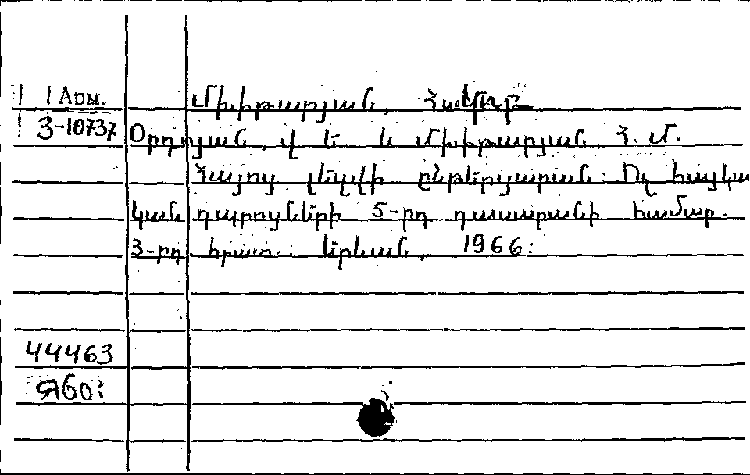 Арм.
3-10737
Միխիթարյան, Հ.
Օրդոյան, Վ. Ե. և Մխիթարյան Հ. Մ.
Հայոց լեզվի ընթերցարան: Ոչ հայկա
կան դպրոցների 5-րդ դասարանի համար.
3-րդ հրատ. Երևան, 1966:
44463